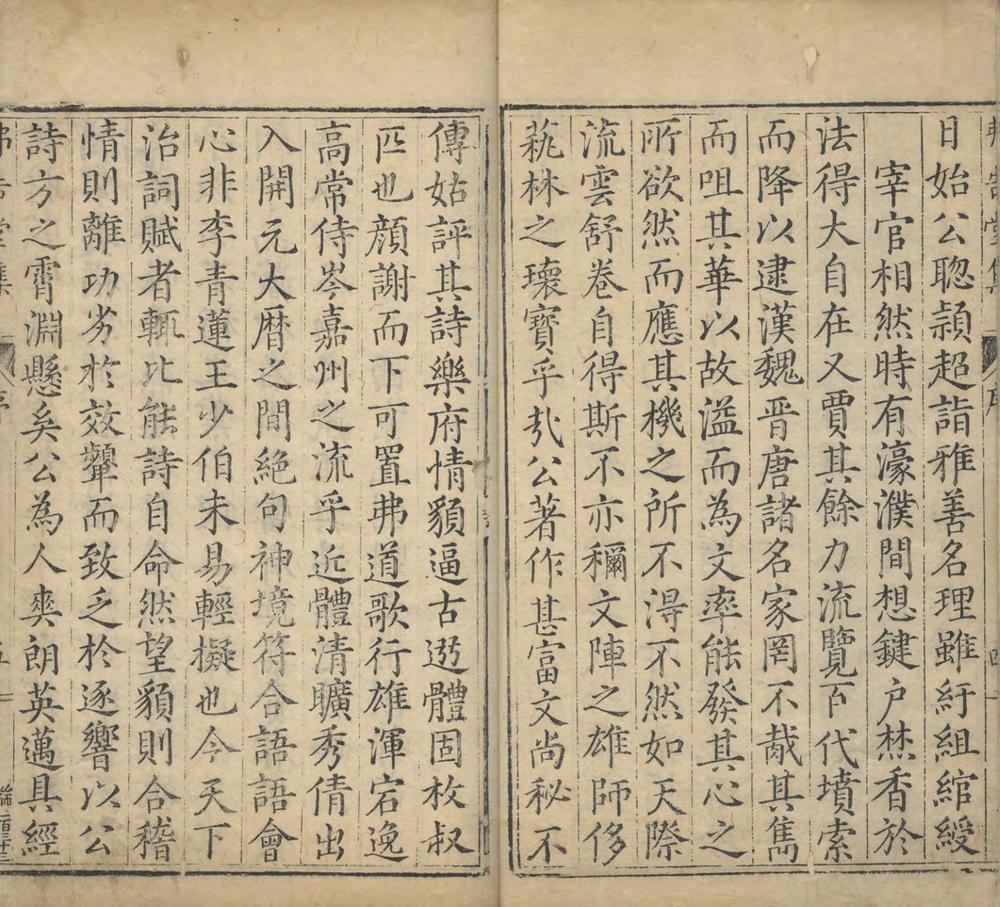 日始公聰穎超詣雅善名理雖紆組綰綬
宰官相然時有濠濮間想鍵户焚香於
法得大自在又賈其餘力流覽百代墳索
而降以逮漢魏晋唐諸名家罔不胾其雋
而咀其華以故溢而為文率能發其心之
所欲然而應其機之所不得不然如天際
流雲舒卷自得斯不亦稱文陣之雄師侈
蓺林之瓌寶乎㢤公著作甚富文尚秘不
傳姑評其詩樂府情貌逼古選體固枚叔
匹也顔謝而下可置弗道歌行雄渾宕逸
高常侍岑嘉州之流乎近體清曠秀倩出
入開元大曆之間絕句神境符合語語會
心非李青蓮王少伯未易輕擬也今天下
治詞賦者輒比能詩自命然望貌則合稽
情則離功劣於效顰而致乏於逐響以公
詩方之霄淵懸矣公為人爽朗英邁具經